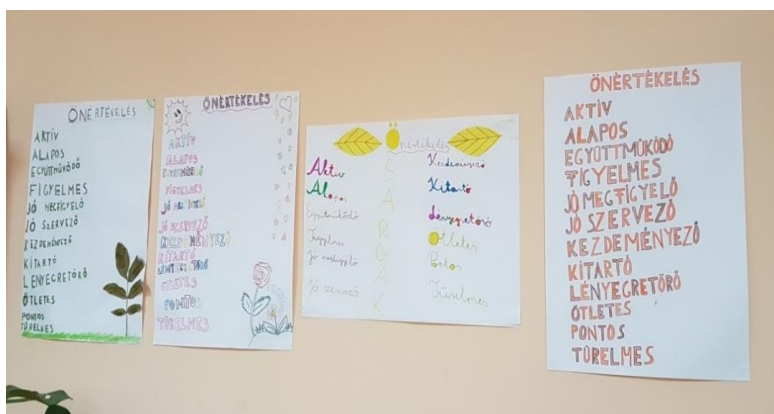 ÖNÉRTÉKELÉS
AKTÍV
ALAPOS
EGYÜTTMŰKÖDŐ
FIGYELMES
JÓ MEGFIGYELŐ
JÓ SZERVEZŐ
KEZDEMÉNYEZŐ
KITARTÓ
LÉNYEGRETÖRŐ
ÖTLETES
PONTOS
TÜRELMES
ÖNÉRTÉKELÉS
AKTÍV
ALAPOS
FIGYELMES
JÓ SZERVEZŐ
KEZDEMÉNYEZŐ
KITARTÓ
LÉNYEGRETÖRŐ
ÖTLETES
PONTOS
TÜRELMES
Önértékelés
SÁRGÁK
Aktív
Alapos
Együttműködő
Figyelmes
Jó megfigyelő
Jó szervező
Kitartó
Lényegretörő
Ötletes
Türelmes
ÖNÈRTÈKELÈS
AKTÌV
ALAPOS
EGYÜTTMŰKÖDŐ
FIGYELMES
JÓ MEGFIGYELŐ
JÓ SZERVEZŐ
KEZDEMÉNYEZŐ
KÍTARTÓ
LÉNYEGRETÖRŐ
ÖTLETES
PONTOS
TÜRELMES